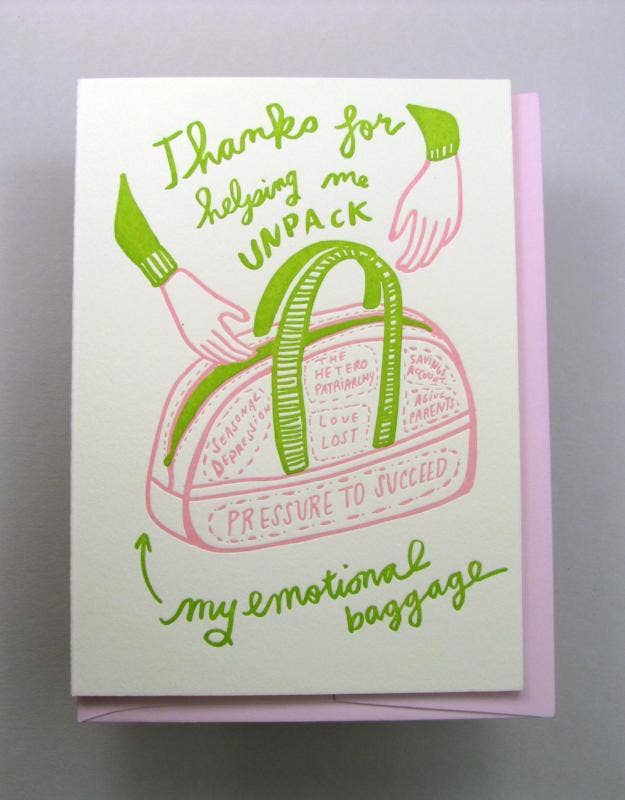 Thanks for
helping me
UNPACK
THE
HETERO
PATRIARCHY
SAVINGS
ACCOUNT
SEASONAL
DEPRESSION
LOVE
LOST
AGING
PARENTS
PRESSURE TO SUCCEED
my emotional
baggage